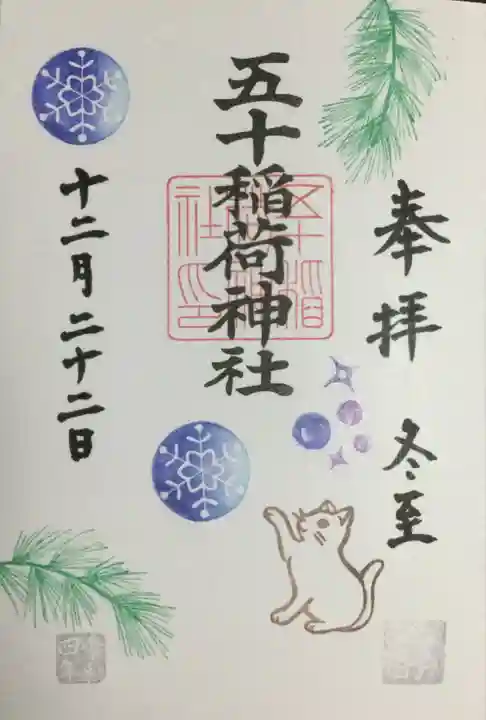 奉拝
冬至
五十稲荷神社
十二月二十二日